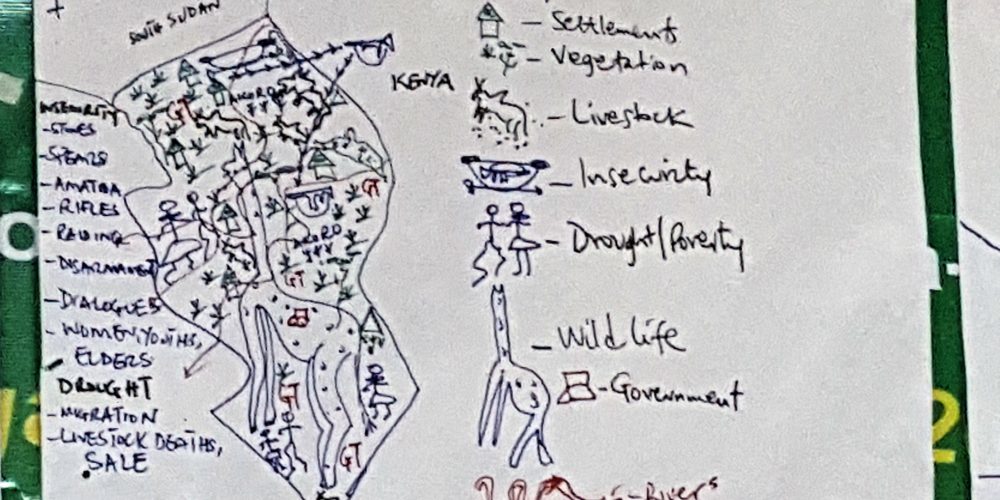 SOUTH SUDAN
KENYA
INSECURITY
- STONES
- SPEARS
- RIFLES
- RAIDING
- DISARMAMENT
- DIALOGUES
- WOMEN, YOUTHS,
ELDERS
DROUGHT
- MIGRATION
- LIVESTOCK DEATHS,
SALE
GT
GT
GT
GT
GT
- Settlements
- Vegetation
- Livestock
- Insecurity
- Drought/Poverty
- Wildlife
- Government
- Rivers
2